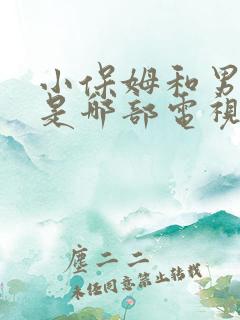 小保姆和男
是那部電視
塵二二
未任同意禁止转载